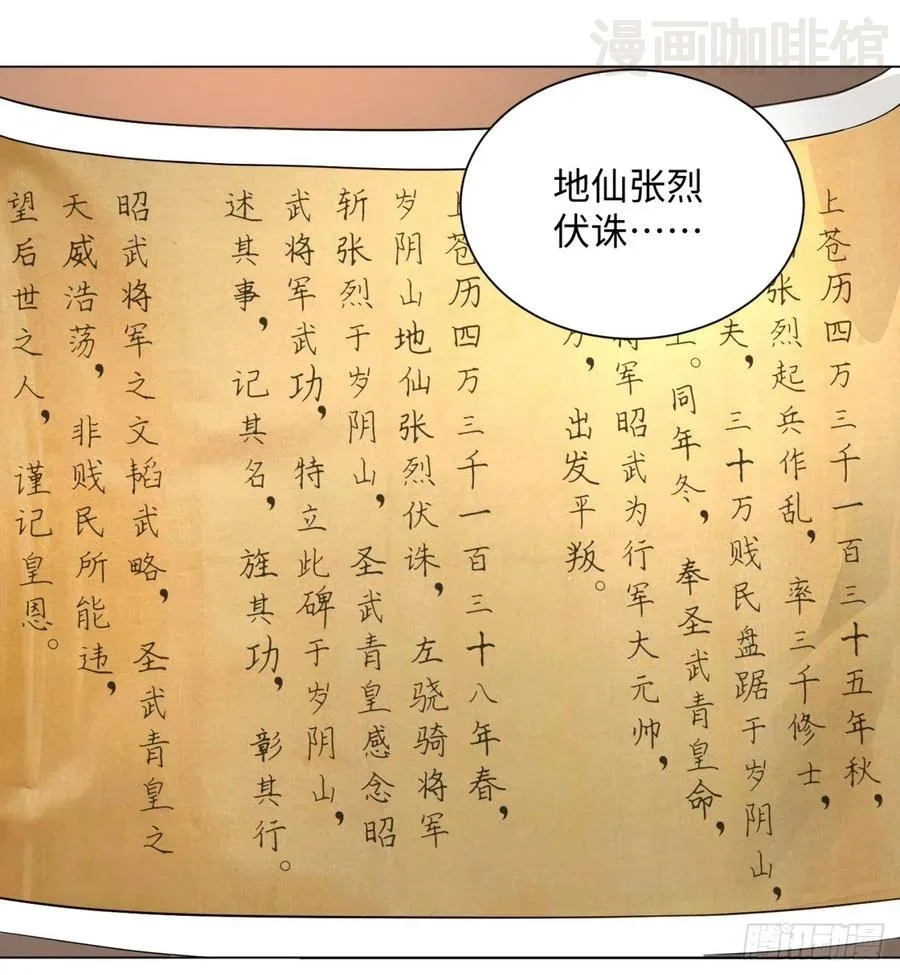 漫画咖啡馆
地仙张烈
伏诛……
上苍历四万三千一百三十五年秋，
张烈起兵作乱，率三千修士，
夫，三十万贱民盘踞于岁阴山，
。同年冬，奉圣武青皇命，
将军昭武为行军大元帅，
，出发平叛。
上苍历四万三千一百三十八年春，
岁阴山地仙张烈伏诛，左骁骑将军
斩张烈于岁阴山，圣武青皇感念昭
武将军武功，特立此碑于岁阴山，
述其事，记其名，旌其功，彰其行。
昭武将军之文韬武略，圣武青皇之
天威浩荡，非贱民所能违，
望后世之人，谨记皇恩。
腾讯动漫